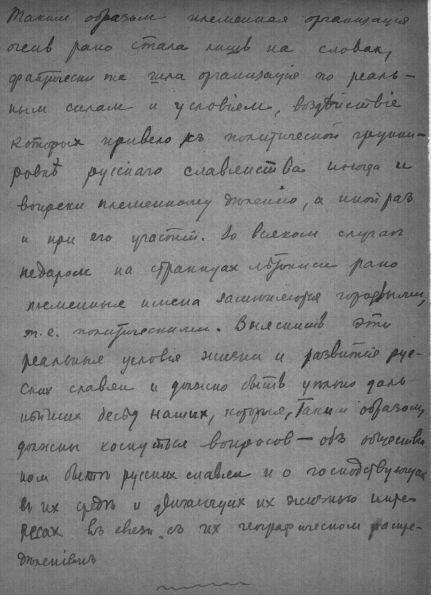 Таким образом племенная организація
очень рано стала лишь на словах,
фактически же шла организація по реаль-
ным силам и условіем, воздѣйствіе
которых привело къ политической группи-
ровкѣ русскаго славянства иногда и
вопреки племенному дѣленію, а иной раз
и при его участіи. Во всяком случае
недаром на страницах лѣтописи рано
племенные имена замѣняются городовыми,
т.е. политическими. Выяснить эти
реальные условія жизни и развитія рус-
ских славян и должно быть цѣлью даль-
нѣйших бесѣд наших, которые, таким образом,
должны коснуться вопросов — объ обществен-
ном бытѣ русских славян и о господствующих
въ их средѣ и движущих их жизнью инте-
ресах въ связи съ их географическом распре-
дѣленіемъ